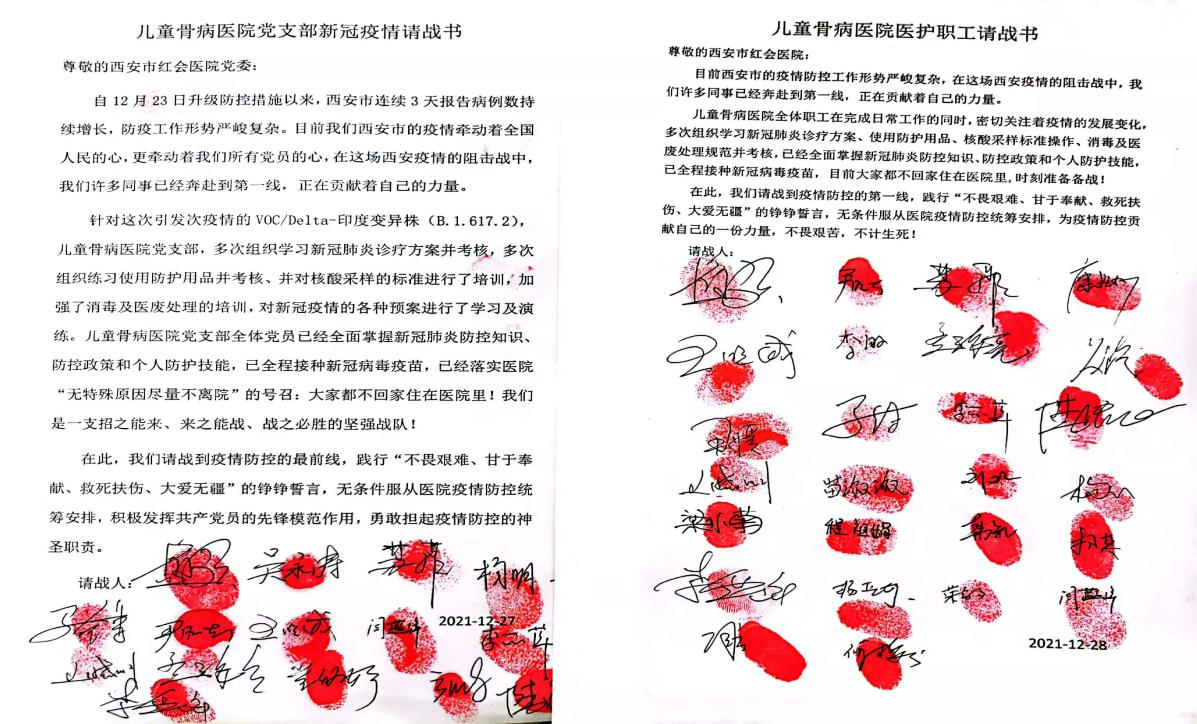 儿童骨病医院党支部新冠疫情请战书
尊敬的西安市红会医院党委:
自 12 月 23 日升级防控措施以来,西安市连续 3 天报告病例数持
续增长,防疫工作形势严峻复杂。目前我们西安市的疫情牵动着全国
人民的心,更牵动着我们所有党员的心,在这场西安疫情的阻击战中,
我们许多同事已经奔赴到第一线,正在贡献着自己的力量。
针对这次引发次疫情的 VOC/Delta-印度变异株(B.1.617.2),
儿童骨病医院党支部,多次组织学习新冠肺炎诊疗方案并考核,多次
组织练习使用防护用品并考核、并对核酸采样的标准进行了培训,加
强了消毒及医废处理的培训,对新冠疫情的各种预案进行了学习及演
练。儿童骨病医院党支部全体党员已经全面掌握新冠肺炎防控知识、
防控政策和个人防护技能,已全程接种新冠病毒疫苗,已经落实医院
“无特殊原因尽量不离院”的号召:大家都不回家住在医院里!我们
是一支招之能来、来之能战、战之必胜的坚强战队!
在此,我们请战到疫情防控的最前线,践行“不畏艰难、甘于奉
献、救死扶伤、大爱无疆”的铮铮誓言,无条件服从医院疫情防控统
筹安排,积极发挥共产党员的先锋模范作用,勇敢担起疫情防控的神
圣职责。
请战人:
吴永涛
杨明
2021-12-27
儿童骨病医院医护职工请战书
尊敬的西安市红会医院:
目前西安市的疫情防控工作形势严峻复杂,在这场西安疫情的阻击战中,我
们许多同事已经奔赴到第一线,正在贡献着自己的力量。
儿童骨病医院全体职工在完成日常工作的同时,密切关注着疫情的发展变化,
多次组织学习新冠肺炎诊疗方案、使用防护用品、核酸采样标准操作、消毒及医
废处理规范并考核,已经全面掌握新冠肺炎防控知识、防控政策和个人防护技能,
已全程接种新冠病毒疫苗,目前大家都不回家住在医院里,时刻准备备战!
在此,我们请战到疫情防控的第一线,践行“不畏艰难、甘于奉献、救死扶
伤、大爱无疆”的铮铮誓言,无条件服从医院疫情防控统筹安排,为疫情防控贡
献自己的一份力量,不畏艰苦,不计生死!
请战人:
李敏
苗淑淑
梁小菊
2021-12-28